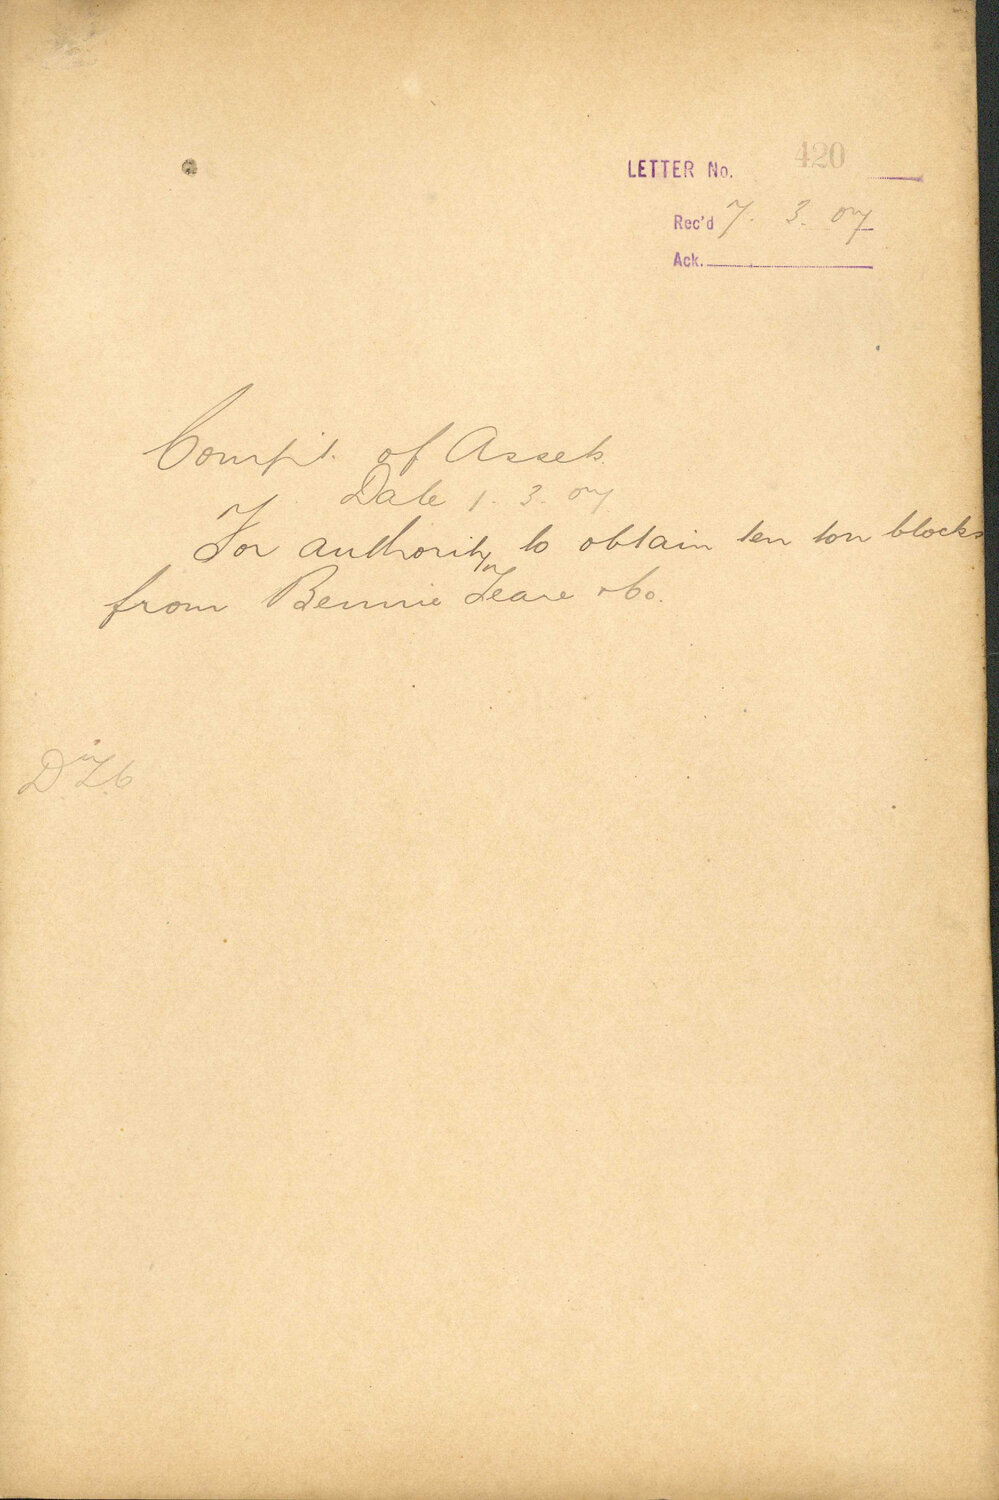 LETTER No. 420
Rec'd 7. 3. 07
Ack.
Compt. of Assets
Date 1. 3. 07
For authority to obtain ten ton blocks
from Bennie Teare & Co.